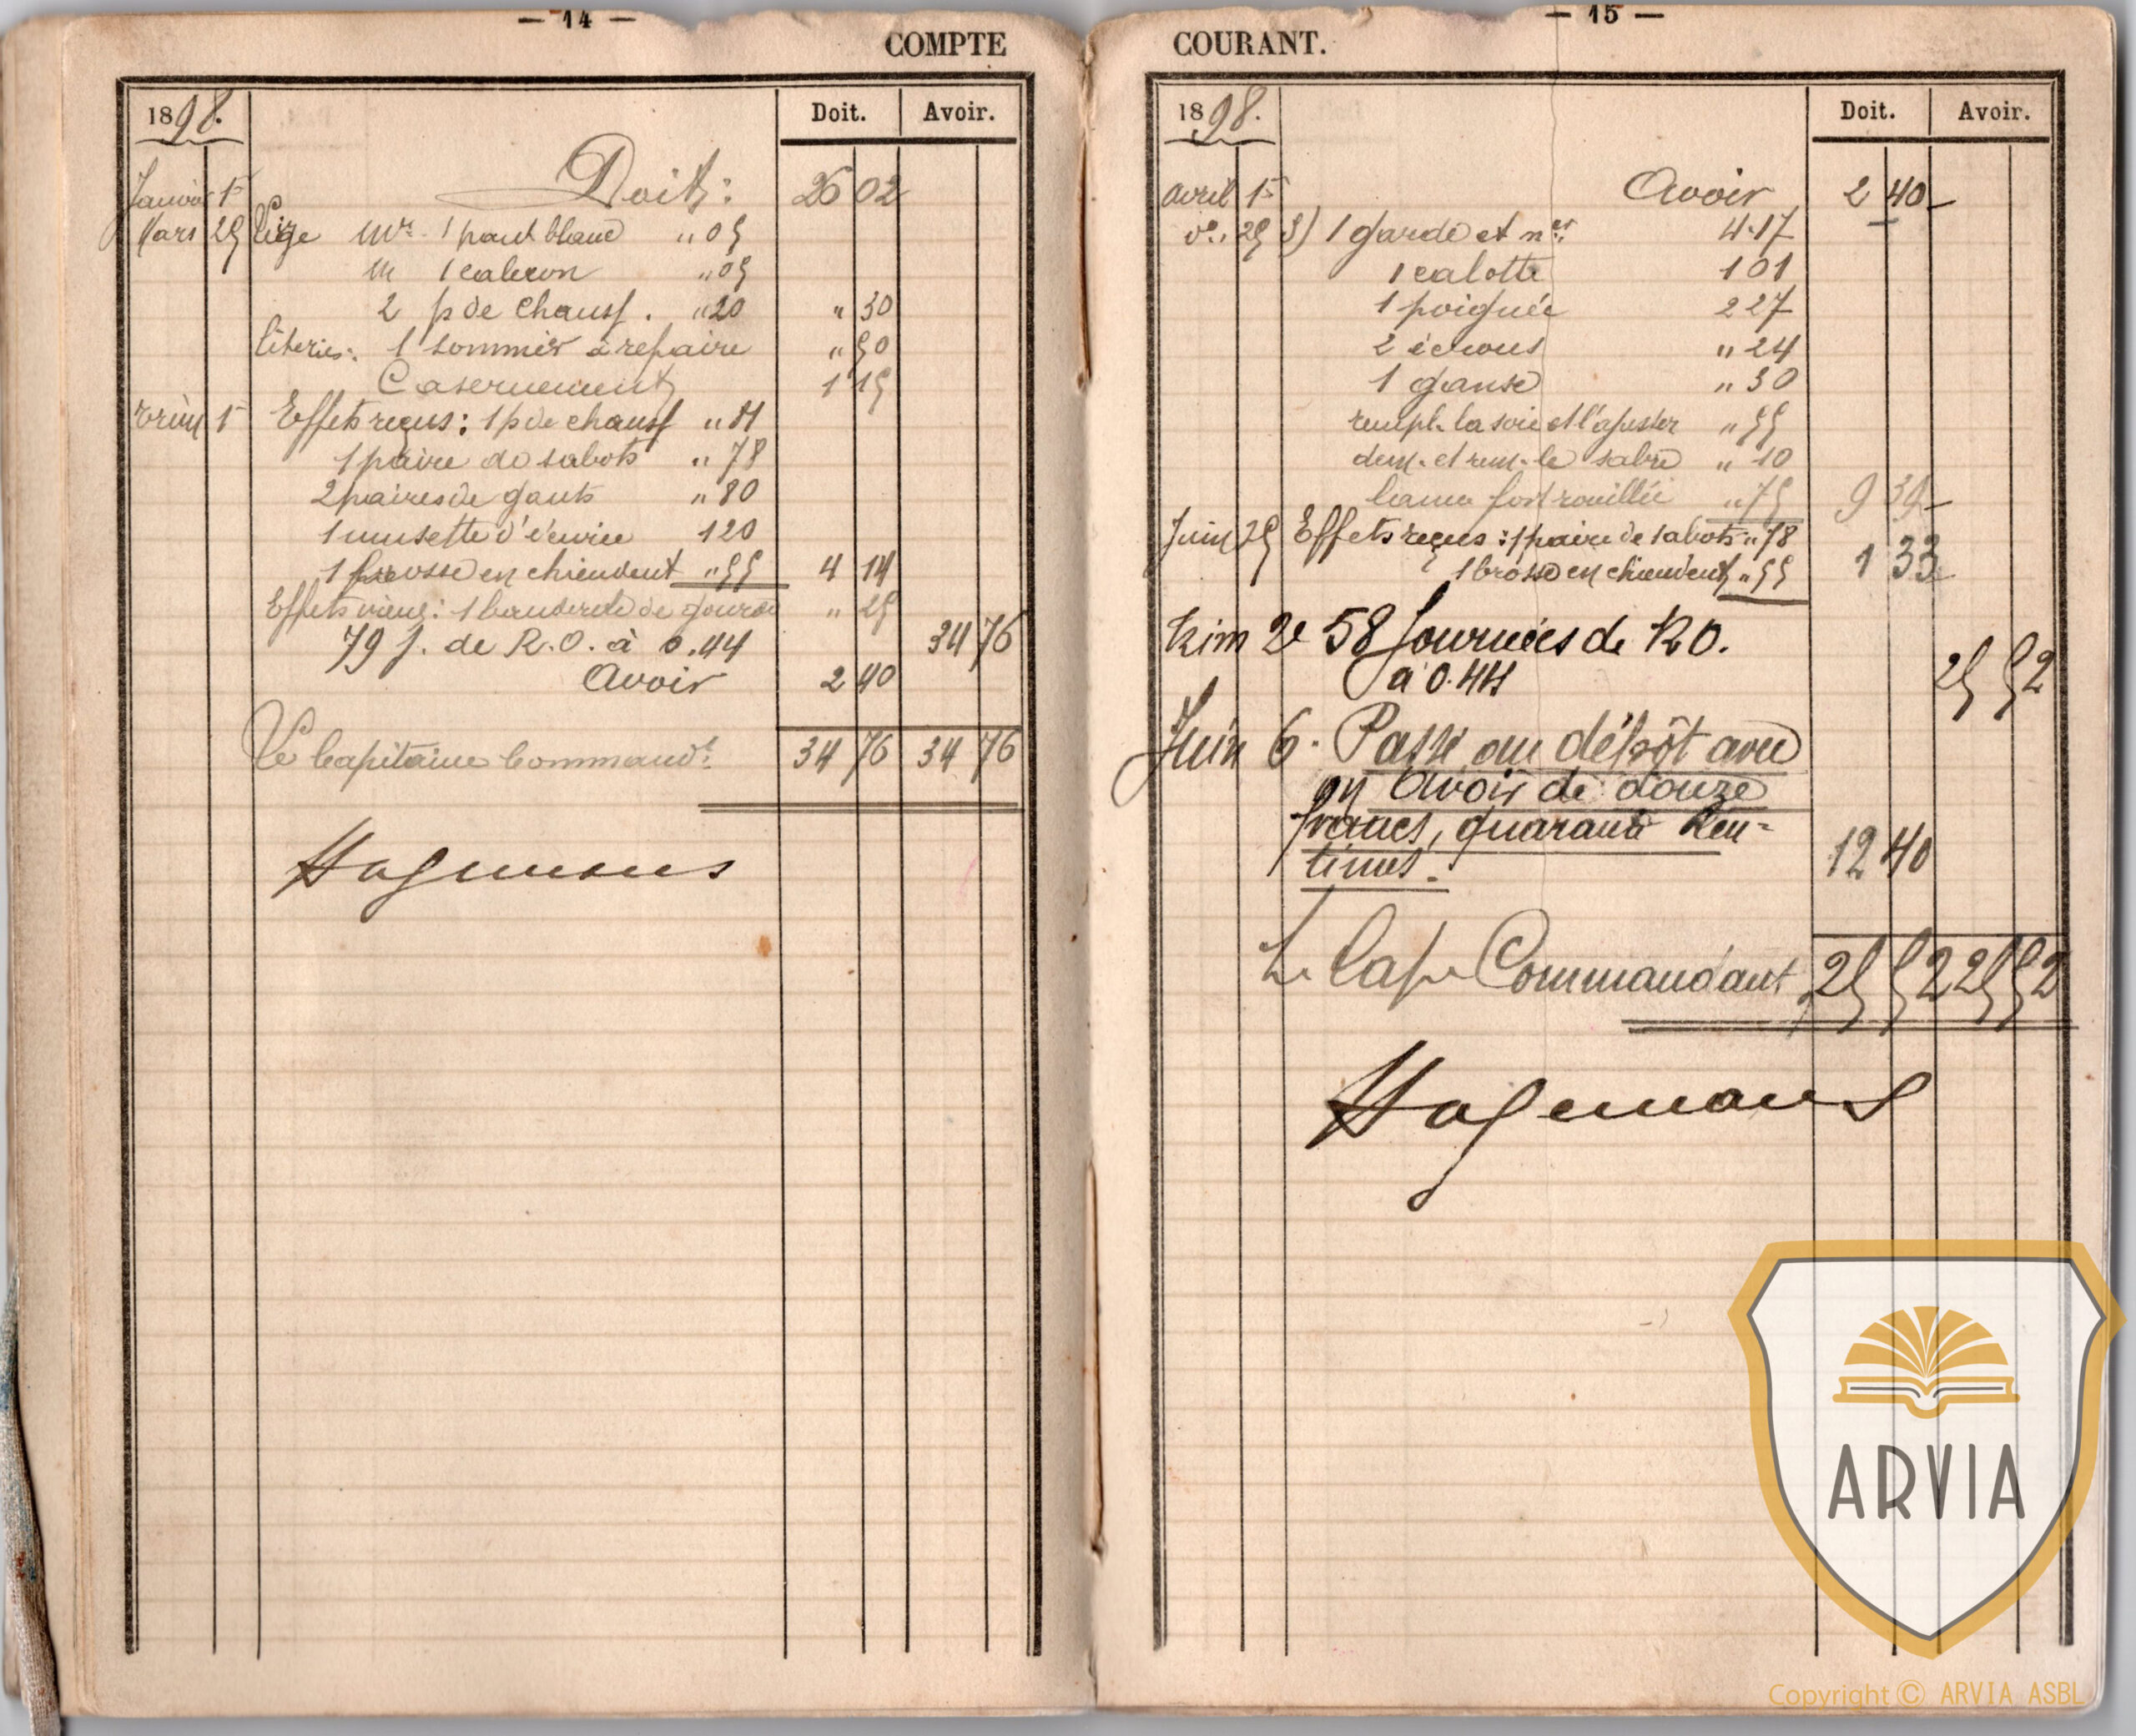 — 14 —
COMPTE
1898. Doit. Avoir.
Janvier 1er Doit: 26 02
Mars 25 Lige Mre 1 pant blanc " 05
1 calecon " 05
2 p de chauss. " 20 " 30
Literies: 1 sommier à repaire " 50
Casernement 1 15
1r Effets reçus: 1 p de chauss " 81
1 paire de sabots " 78
2 paires de gants " 80
1 musette d'écurie 1 20
1 brosse en chiendent " 55 4 14
Effets vieux: 1 banderole de gourde " 25
79 j. de R.O. à 0.44 34 76
Avoir 2 40
Le Capitaine Commandt 34 76 34 76
Hagemans
— 15 —
COURANT.
1898. Doit. Avoir.
Avril 1er Avoir 2 40
do 25 S) 1 garde et 4.17
1 calotte 1 01
1 poignée 2 27
2 écrous " 24
1 ganse " 30
rempl. la soie et l'ajuster " 55
dem. et rem. le sabre " 10
lame fort rouillée " 75 9 39
Juin 25 Effets reçus: 1 paire de sabots " 78
1 brosse en chiendent " 55 1 33
Trim 2e 58 journées de RO.
à 0.44 25 52
Juin 6. Passé au dépôt avec
un avoir de douze
francs, quarante cen-
times. 12 40
Le Cape Commandant 25 52 25 52
Hagemans
ARVIA
Copyright © ARVIA ASBL